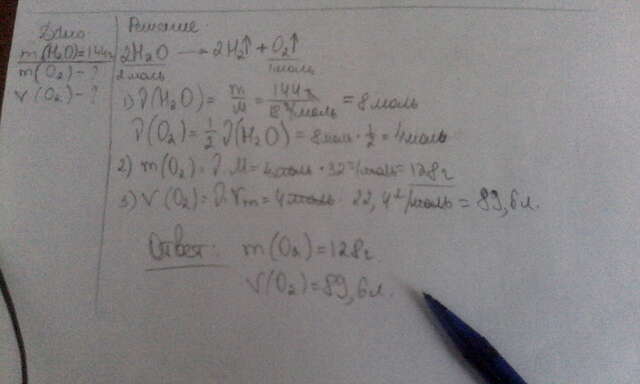 Дано
m(H₂O)=144г
m(O₂) - ?
V(O₂) - ?
Решение
2H₂O → 2H₂↑ + O₂↑
2моль 1моль
1) ν(H₂O) = m/M = 144г/18г/моль = 8моль
ν(O₂) = 1/2 ν(H₂O) = 8моль · 1/2 = 4моль
2) m(O₂) = ν · M = 4моль · 32г/моль = 128г
3) V(O₂) = ν · Vm = 4моль · 22,4л/моль = 89,6л.
Ответ: m(O₂) = 128г.
V(O₂) = 89,6л.